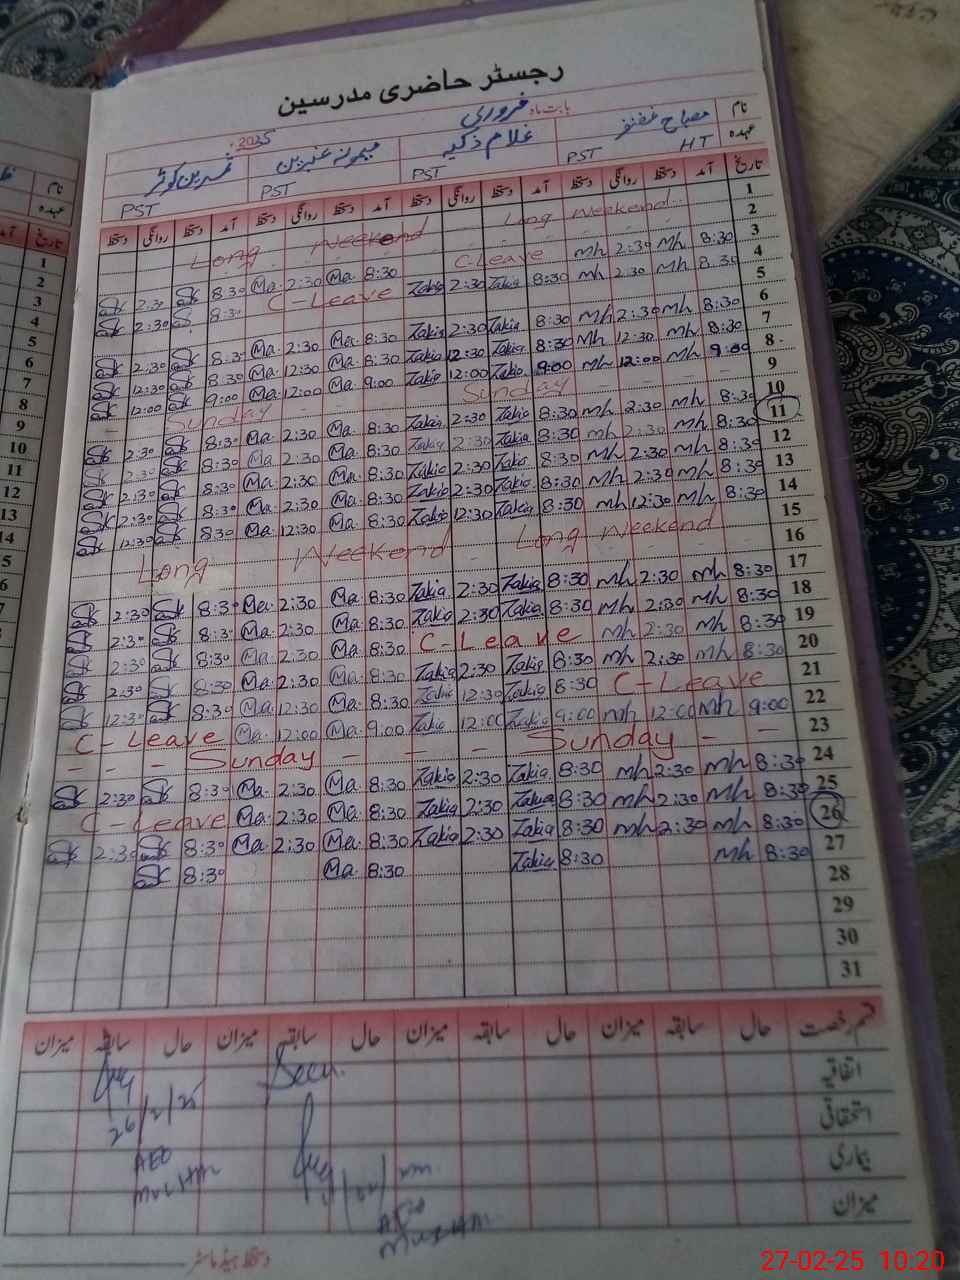 رجسٹر حاضری مدرسین
بابت ماہ فروری 2025
نام مصباح غضنفر غلام ذکیہ میمونہ عنبرین نسرین کوثر
عہدہ HT PST PST PST PST
تاریخ آمد دستخط روانگی دستخط آمد دستخط روانگی دستخط آمد دستخط روانگی دستخط آمد دستخط روانگی دستخط
1 Long Weekend Long Weekend
2
3 8:30 mh 2:30 mh C-Leave 8:30 Ma. 2:30 Ma. 8:30 2:30
4 8:30 mh 2:30 mh 8:30 Zakia 2:30 Zakia C-Leave 8:30 2:30
5
6 8:30 mh 2:30 mh 8:30 Zakia 2:30 Zakia 8:30 Ma. 2:30 Ma. 8:30 2:30
7 8:30 mh 12:30 mh 8:30 Zakia 12:30 Zakia 8:30 Ma. 12:30 Ma. 8:30 12:30
8 9:00 mh 12:00 mh 9:00 Zakia 12:00 Zakia 9:00 Ma. 12:00 Ma. 9:00 12:00
9 Sunday Sunday
10 8:30 mh 2:30 mh 8:30 Zakia 2:30 Zakia 8:30 Ma. 2:30 Ma. 8:30 2:30
11 8:30 mh 2:30 mh 8:30 Zakia 2:30 Zakia 8:30 Ma. 2:30 Ma. 8:30 2:30
12 8:30 mh 2:30 mh 8:30 Zakia 2:30 Zakia 8:30 Ma. 2:30 Ma. 8:30 2:30
13 8:30 mh 2:30 mh 8:30 Zakia 2:30 Zakia 8:30 Ma. 2:30 Ma. 8:30 2:30
14 8:30 mh 12:30 mh 8:30 Zakia 12:30 Zakia 8:30 Ma. 12:30 Ma. 8:30 12:30
15 Long Weekend Long Weekend
16
17 8:30 mh 2:30 mh 8:30 Zakia 2:30 Zakia 8:30 Ma. 2:30 Ma. 8:30 2:30
18 8:30 mh 2:30 mh 8:30 Zakia 2:30 Zakia 8:30 Ma. 2:30 Ma. 8:30 2:30
19 8:30 mh 2:30 mh C-Leave 8:30 Ma. 2:30 Ma. 8:30 2:30
20 8:30 mh 2:30 mh 8:30 Zakia 2:30 Zakia 8:30 Ma. 2:30 Ma. 8:30 2:30
21 C-Leave 8:30 Zakia 12:30 Zakia 8:30 Ma. 12:30 Ma. 8:30 12:30
22 9:00 mh 12:00 mh 9:00 Zakia 12:00 Zakia 9:00 Ma. 12:00 Ma. C-Leave
23 Sunday Sunday
24 8:30 mh 2:30 mh 8:30 Zakia 2:30 Zakia 8:30 Ma. 2:30 Ma. 8:30 2:30
25 8:30 mh 2:30 mh 8:30 Zakia 2:30 Zakia 8:30 Ma. 2:30 Ma. C-Leave
26 8:30 mh 2:30 mh 8:30 Zakia 2:30 Zakia 8:30 Ma. 2:30 Ma. 8:30 2:30
27 8:30 mh 8:30 Zakia 8:30 Ma. 8:30
28
29
30
31
قسم رخصت حال سابقہ میزان حال سابقہ میزان حال سابقہ میزان حال سابقہ میزان
اتفاقیہ
استحقاقی
بیماری
میزان
Seen.
26/2/25
AEO
AEO
دستخط ہیڈ ماسٹر
نام
عہدہ
تاریخ
1
2
3
4
5
6
7
8
9
10
11
12
13
14
27-02-25 10:20